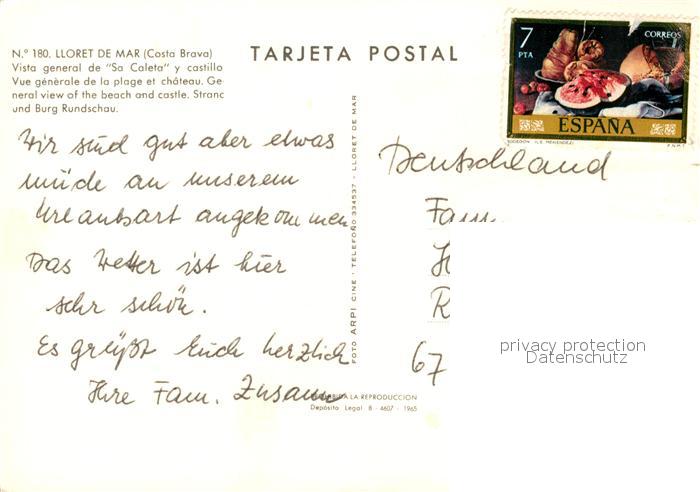 N.º 180. LLORET DE MAR (Costa Brava)
Vista general de "Sa Caleta" y castillo
Vue générale de la plage et château. Ge-
neral view of the beach and castle. Stranc
und Burg Rundschau.
TARJETA POSTAL
7
PTA
CORREOS
ESPAÑA
BODEGON (L.E. MENENDEZ)
F.N.M.T.
Wir sind gut aber etwas
müde an unserem
Urlaubsort angekommen
Das Wetter ist hier
sehr schön.
Es grüßt Euch herzlich
Ihre Fam.
FOTO ARPI CINE · TELEFONO 334537 · LLORET DE MAR
Deutschland
Fam
H
R
67
privacy protection
Datenschutz
PROHIBIDA LA REPRODUCCION
Depósito Legal B - 4607 - 1965